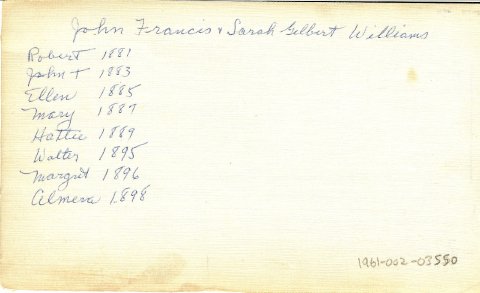 John Francis & Sarah Gilbert Williams
Robert 1881
John T 1883
Ellen 1885
Mary 1887
Hattie 1889
Walter 1895
Margrit 1896
Almera 1898
1961-002-03550